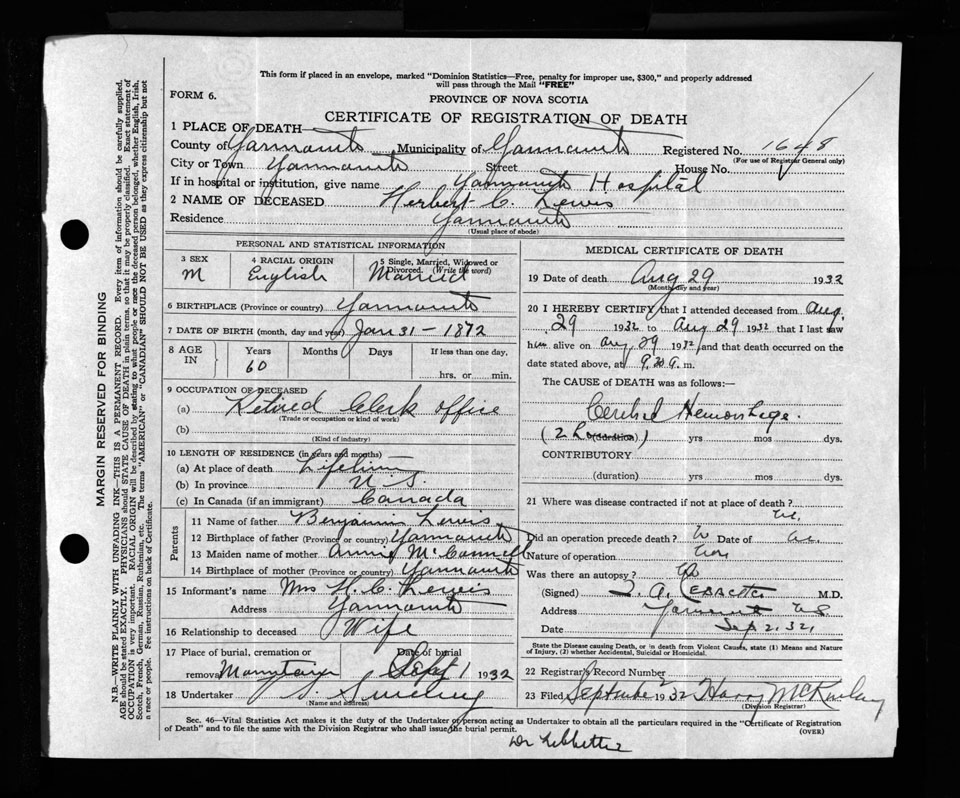 This form if placed in an envelope, marked "Dominion Statistics—Free, penalty for improper use, $300," and properly addressed
will pass through the Mail "FREE"
FORM 6.
PROVINCE OF NOVA SCOTIA
CERTIFICATE OF REGISTRATION OF DEATH
1 PLACE OF DEATH
County of Yarmouth Municipality of Yarmouth Registered No. 1648
(For use of Registrar General only)
City or Town Yarmouth Street House No.
If in hospital or institution, give name Yarmouth Hospital
2 NAME OF DECEASED Herbert C. Lewis
Residence Yarmouth
(Usual place of abode)
MARGIN RESERVED FOR BINDING
N.B.—WRITE PLAINLY WITH UNFADING INK—THIS IS A PERMANENT RECORD. Every item of information should be carefully supplied.
AGE should be stated EXACTLY. PHYSICIANS should STATE CAUSE OF DEATH in plain terms, so that it may be properly classified. Exact statement of
OCCUPATION is very important. RACIAL ORIGIN will be described by stating to what people or race the deceased person belonged, whether English, Irish,
Scotch, French, German, Russian, Ruthenian, etc. The terms "AMERICAN" or "CANADIAN" SHOULD NOT BE USED as they express citizenship but not
a race or people. Fee instructions on back of Certificate.
PERSONAL AND STATISTICAL INFORMATION
3 SEX 4 RACIAL ORIGIN 5 Single, Married, Widowed or
Divorced. (Write the word)
M English Married
6 BIRTHPLACE (Province or country) Yarmouth
7 DATE OF BIRTH (month, day and year) Jan 31 - 1872
8 AGE IN Years Months Days If less than one day,
60
hrs. or min.
9 OCCUPATION OF DECEASED
(a) Retired Clerk office
(Trade or occupation or kind of work)
(b)
(Kind of industry)
10 LENGTH OF RESIDENCE (in years and months)
(a) At place of death Lifetime
(b) In province N.S.
(c) In Canada (if an immigrant) Canada
Parents
11 Name of father Benjamin Lewis
12 Birthplace of father (Province or country) Yarmouth
13 Maiden name of mother Annie McConnell
14 Birthplace of mother (Province or country) Yarmouth
15 Informant's name Mrs H. C. Lewis
Address Yarmouth
16 Relationship to deceased Wife
17 Place of burial, cremation or Date of burial
removal Sept 1 1932
18 Undertaker
(Name and address)
MEDICAL CERTIFICATE OF DEATH
19 Date of death Aug 29 1932
(Month, day and year)
20 I HEREBY CERTIFY that I attended deceased from Aug.
29 1932 to Aug 29 1932 that I last saw
him alive on Aug 29 1932 and that death occurred on
date stated above, at m.
The CAUSE of DEATH was as follows:—
Cerebral Hemorrhage.
(duration) yrs mos dys.
CONTRIBUTORY
(duration) yrs mos dys.
21 Where was disease contracted if not at place of death?
Did an operation precede death? Date of
Nature of operation
Was there an autopsy?
(Signed) M.D.
Address Yarmouth NS
Date Sep 2. 32,
State the Disease causing Death, or in death from Violent Causes, state (1) Means and Nature
of Injury, (2) whether Accidental, Suicidal or Homicidal.
22 Registrar's Record Number
23 Filed September 2 1932 Harry McKinlay
(Division Registrar)
Sec. 46—Vital Statistics Act makes it the duty of the Undertaker or person acting as Undertaker to obtain all the particulars required in the "Certificate of Registration
of Death" and to file the same with the Division Registrar who shall issue the burial permit.
(OVER)